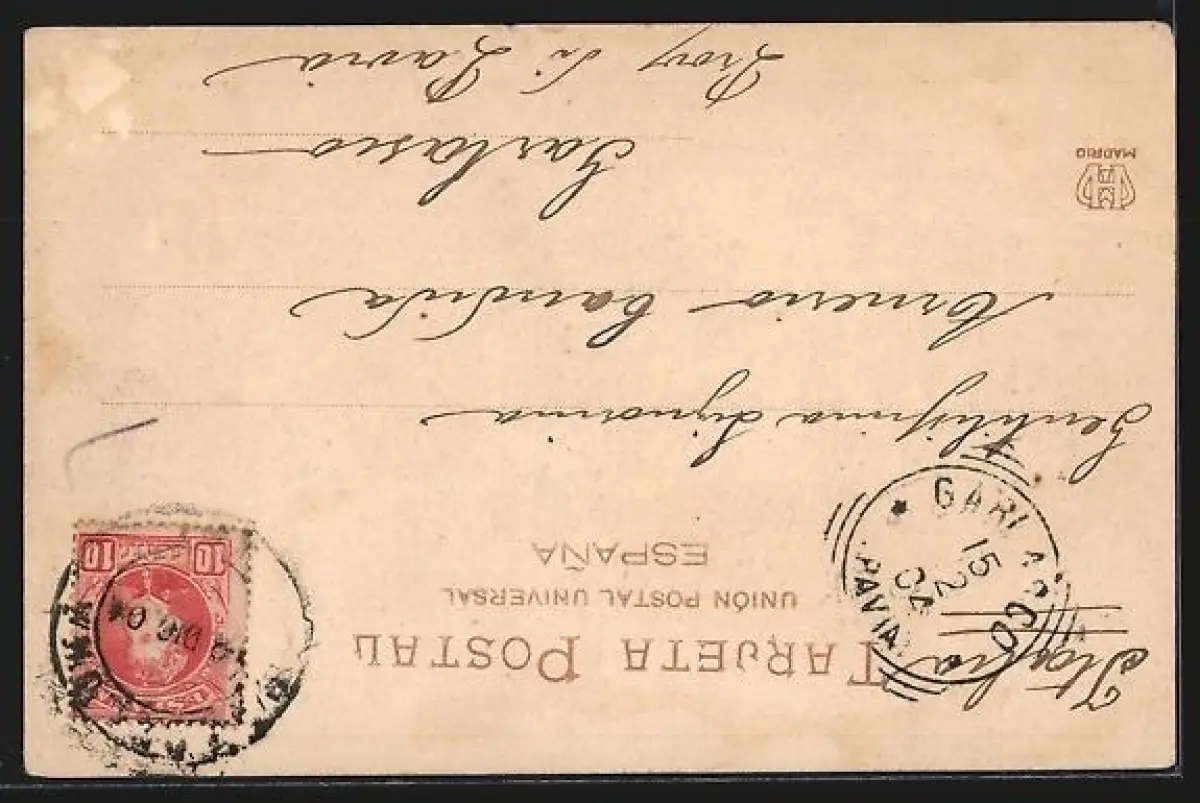 TARJETA POSTAL
UNIÓN POSTAL UNIVERSAL
ESPAÑA
Italia
GARLASCO
15 2 04
PAVIA
DIC 04
10 10
Gentilissima Signorina
Candida
Garlasco
Prov di Pavia
MADRID